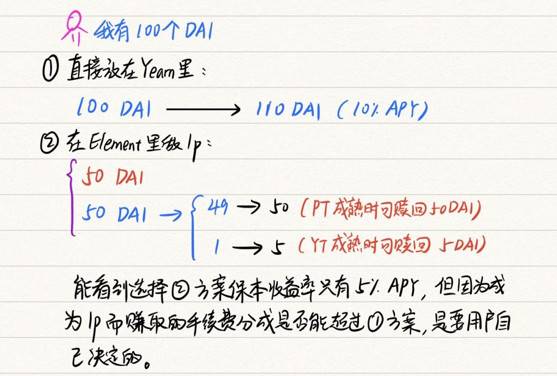 我有100个DAI
① 直接放在Yearn里:
100 DAI → 110 DAI (10% APY)
② 在Element里做lp:
50 DAI
50 DAI → 49 → 50 (PT成熟时可赎回50DAI)
1 → 5 (YT成熟时可赎回 5DAI)
能看到选择②方案保本收益率只有5% APY, 但因为成
为lp而赚取的手续费分成是否能超过①方案, 是要用户自
己决定的。